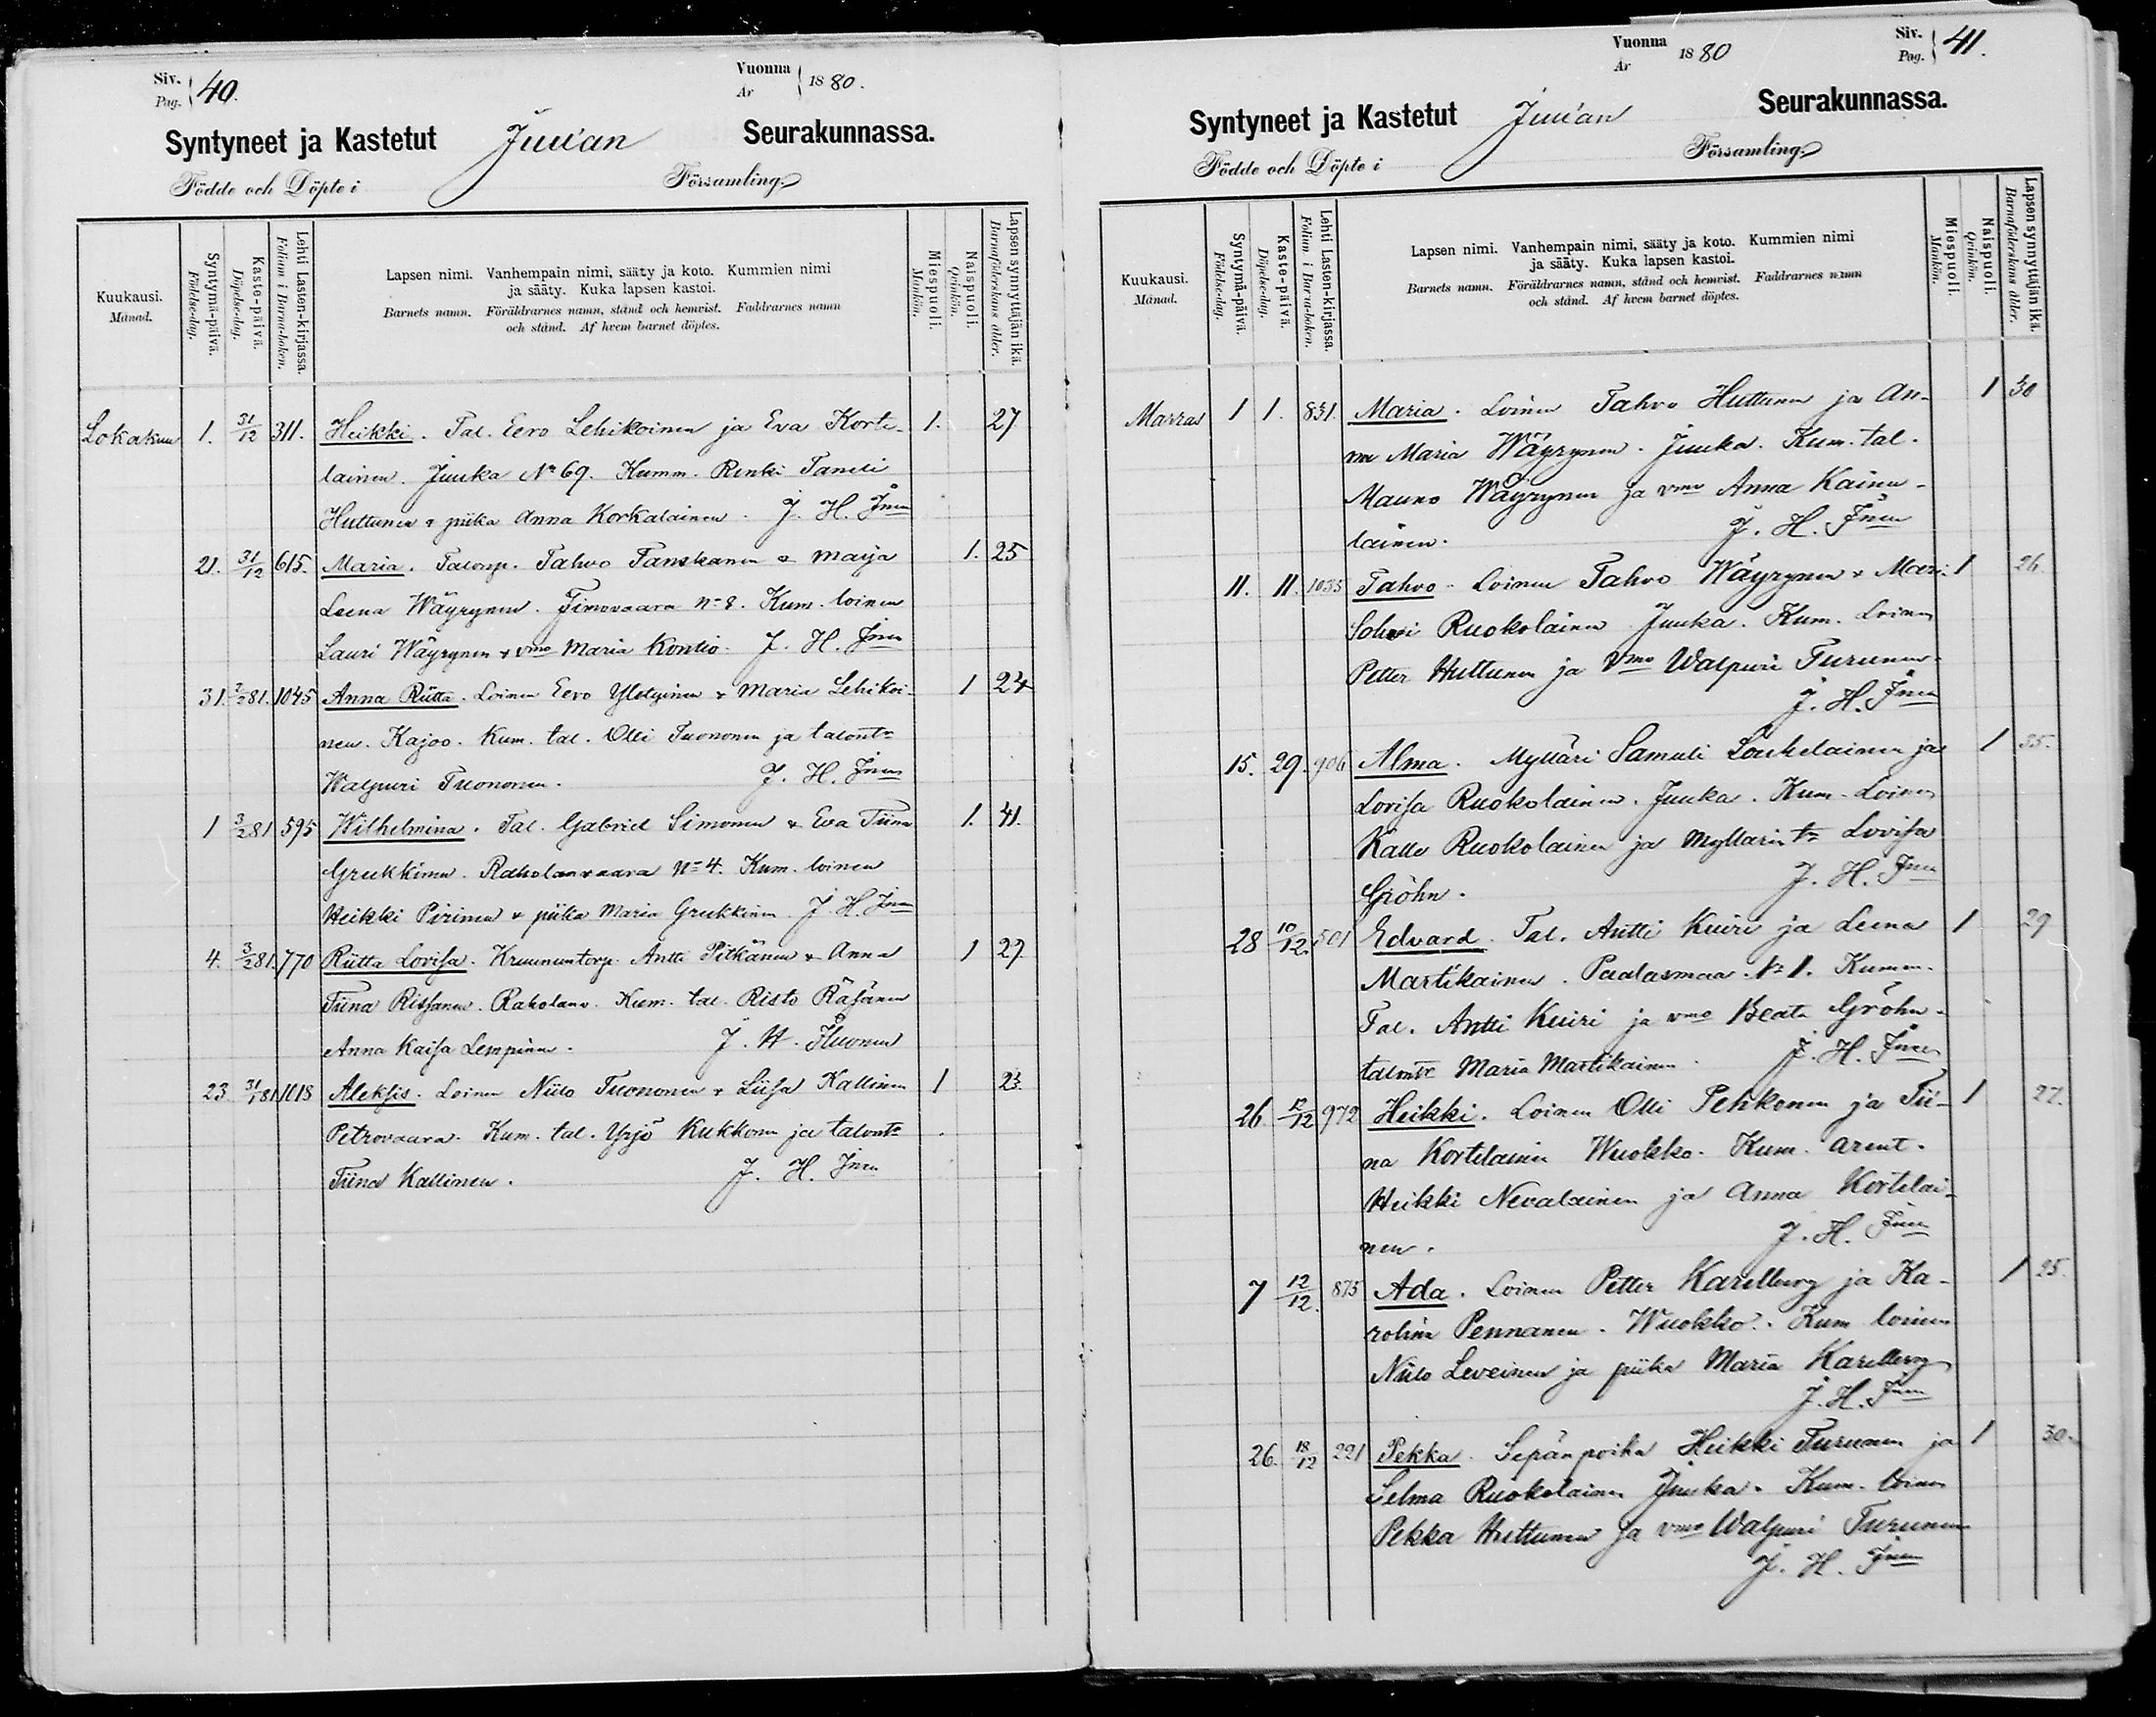 Siv. Pag. 40.
Vuonna År 1880.
Syntyneet ja Kastetut Juuan Seurakunnassa.
Födde och Döpte i Församling.
Kuukausi. Månad.
Syntymä-päivä. Födelse-dag.
Kaste-päivä. Döpelse-dag.
Lehti Lasten-kirjassa. Folium i Barna-boken.
Lapsen nimi. Vanhempain nimi, sääty ja koto. Kummien nimi
ja sääty. Kuka lapsen kastoi.
Barnets namn. Föräldrarnes namn, stånd och hemvist. Faddrarnes namn
och stånd. Af hvem barnet döptes.
Miespuoli. Mankön.
Naispuoli. Qvinkön.
Lapsen synnyttäjän ikä. Barnaföderskans ålder.
Lokakuu 1. 31/12 311. Heikki. Tal. Eero Lehikoinen ja Eva Korte- 1. 27
lainen. Juuka No 69. Kumm. Renki Taneli
Huttunen & piika Anna Korkalainen. J. H. Jnen
21. 31/12 615. Maria. Talonp. Tahvo Tanskanen & Maija 1. 25
Leena Wäyrynen. Timovaara No 8. Kum. loinen
Lauri Wäyrynen & vmo Maria Kontio. J. H. Jnen
31. 3/2 81. 1045 Anna Riitta. Loinen Eero Ylötyinen & Maria Lehikoi- 1 24
nen. Kajoo. Kum. tal. Olli Tuononen ja talontr
Walpuri Tuononen. J. H. Jnen
1 3/2 81 595 Wilhelmina. Tal. Gabriel Simonen & Eva Tiina 1. 41.
Grukkinen. Raholanvaara No 4. Kum. loinen
Heikki Pirinen & piika Maria Grukkinen. J. H. Jnen
4. 3/2 81. 770 Riitta Lovisa. Kruununtorp. Antti Pitkänen & Anna 1 27.
Tiina Rissanen. Raholanv. Kum. tal. Risto Räsänen
Anna Kaisa Lempinen. J. H.
23 31/1 81 1018 Aleksis. Loinen Niilo Tuononen & Liisa Kallinen 1 23.
Petrovaara. Kum. tal. Yrjö Kukkonen ja talontr
Tiina Kallinen. J. H. Jnen
Vuonna År 1880
Siv. Pag. 41.
Syntyneet ja Kastetut Juuan Seurakunnassa.
Födde och Döpte i Församling.
Kuukausi. Månad.
Syntymä-päivä. Födelse-dag.
Kaste-päivä. Döpelse-dag.
Lehti Lasten-kirjassa. Folium i Barna-boken.
Lapsen nimi. Vanhempain nimi, sääty ja koto. Kummien nimi
ja sääty. Kuka lapsen kastoi.
Barnets namn. Föräldrarnes namn, stånd och hemvist. Faddrarnes namn
och stånd. Af hvem barnet döptes.
Miespuoli. Mankön.
Naispuoli. Qvinkön.
Lapsen synnyttäjän ikä. Barnaföderskans ålder.
Marras 1 1. 831. Maria. Loinen Tahvo Huttunen ja An- 1 30
na Maria Wäyrynen. Juuka. Kum. tal.
Mauno Wäyrynen ja vmo Anna Kainu-
lainen. J. H. Jnen
11. 11. 1035 Tahvo. Loinen Tahvo Wäyrynen & Mari 1 26.
Ruokolainen Juuka. Kum. Loinen
Petter Huttunen ja Vmo Walpuri Turunen.
J. H. Jnen
15. 29. 906 Alma. Mylläri Samuli Louhelainen ja 1 35.
Lovisa Ruokolainen. Juuka. Kum. Loinen
Kalle Ruokolainen ja Myllärin tr Lovisa
Gröhn. J. H. Jnen
28 10/12. 501 Edvard. Tal. Antti Kuiri ja Leena 1 29
Martikainen. Paalasmaa No 1. Kumm.
Tal. Antti Kuiri ja vmo Beata Gröhn.
talontr Maria Martikainen. J. H. Jnen
26. 12/12 972 Heikki. Loinen Olli Pehkonen ja Tii- 1 27.
na Kortelainen Wuokko. Kum. arent.
Heikki Nevalainen ja Anna Kortelai-
nen. J. H. Jnen
7 12/12. 875 Ada. Loinen Petter Karellberg ja Ka- 1 25.
rolina Pennanen. Wuokko. Kum. loinen
Niilo Leveinen ja piika Maria Karellberg
J. H. Jnen
26. 18/12 221 Pekka. Sepänpoika Heikki Turunen ja 1 30.
Selma Ruokolainen Juuka. Kum. loinen
Pekka Huttunen ja vmo Walpuri Turunen
J. H. Jnen